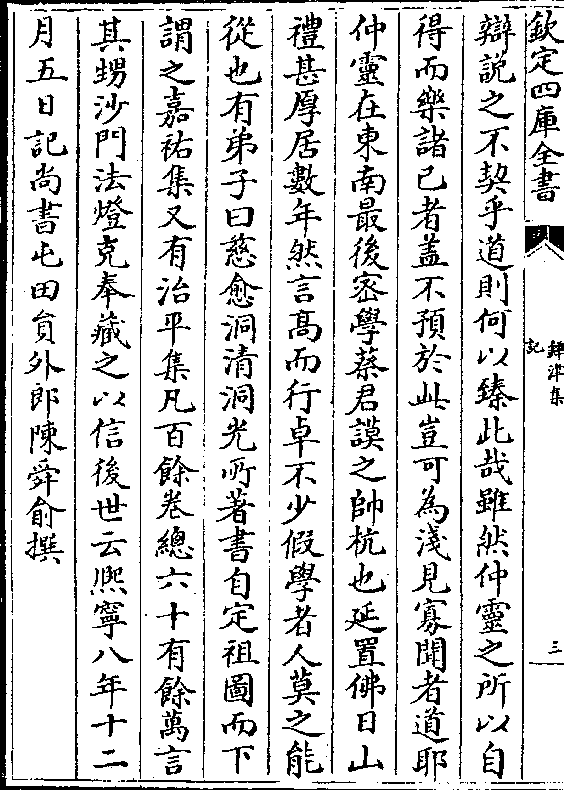 欽定四庫全書
鐔津集
記
三
辯説之不契乎道則何以臻此哉雖然仲靈之所以自
得而樂諸已者蓋不預於此豈可為淺見寡聞者道耶
仲靈在東南最後宻學蔡君謨之帥杭也延置佛日山
禮甚厚居數年然言髙而行卓不少假學者人莫之能
從也有弟子曰慈愈洞清洞光所著書自定祖圖而下
謂之嘉祐集又有治平集凡百餘巻總六十有餘萬言
其甥沙門法燈克奉藏之以信後世云熈寧八年十二
月五日記尚書屯田員外郎陳舜俞撰